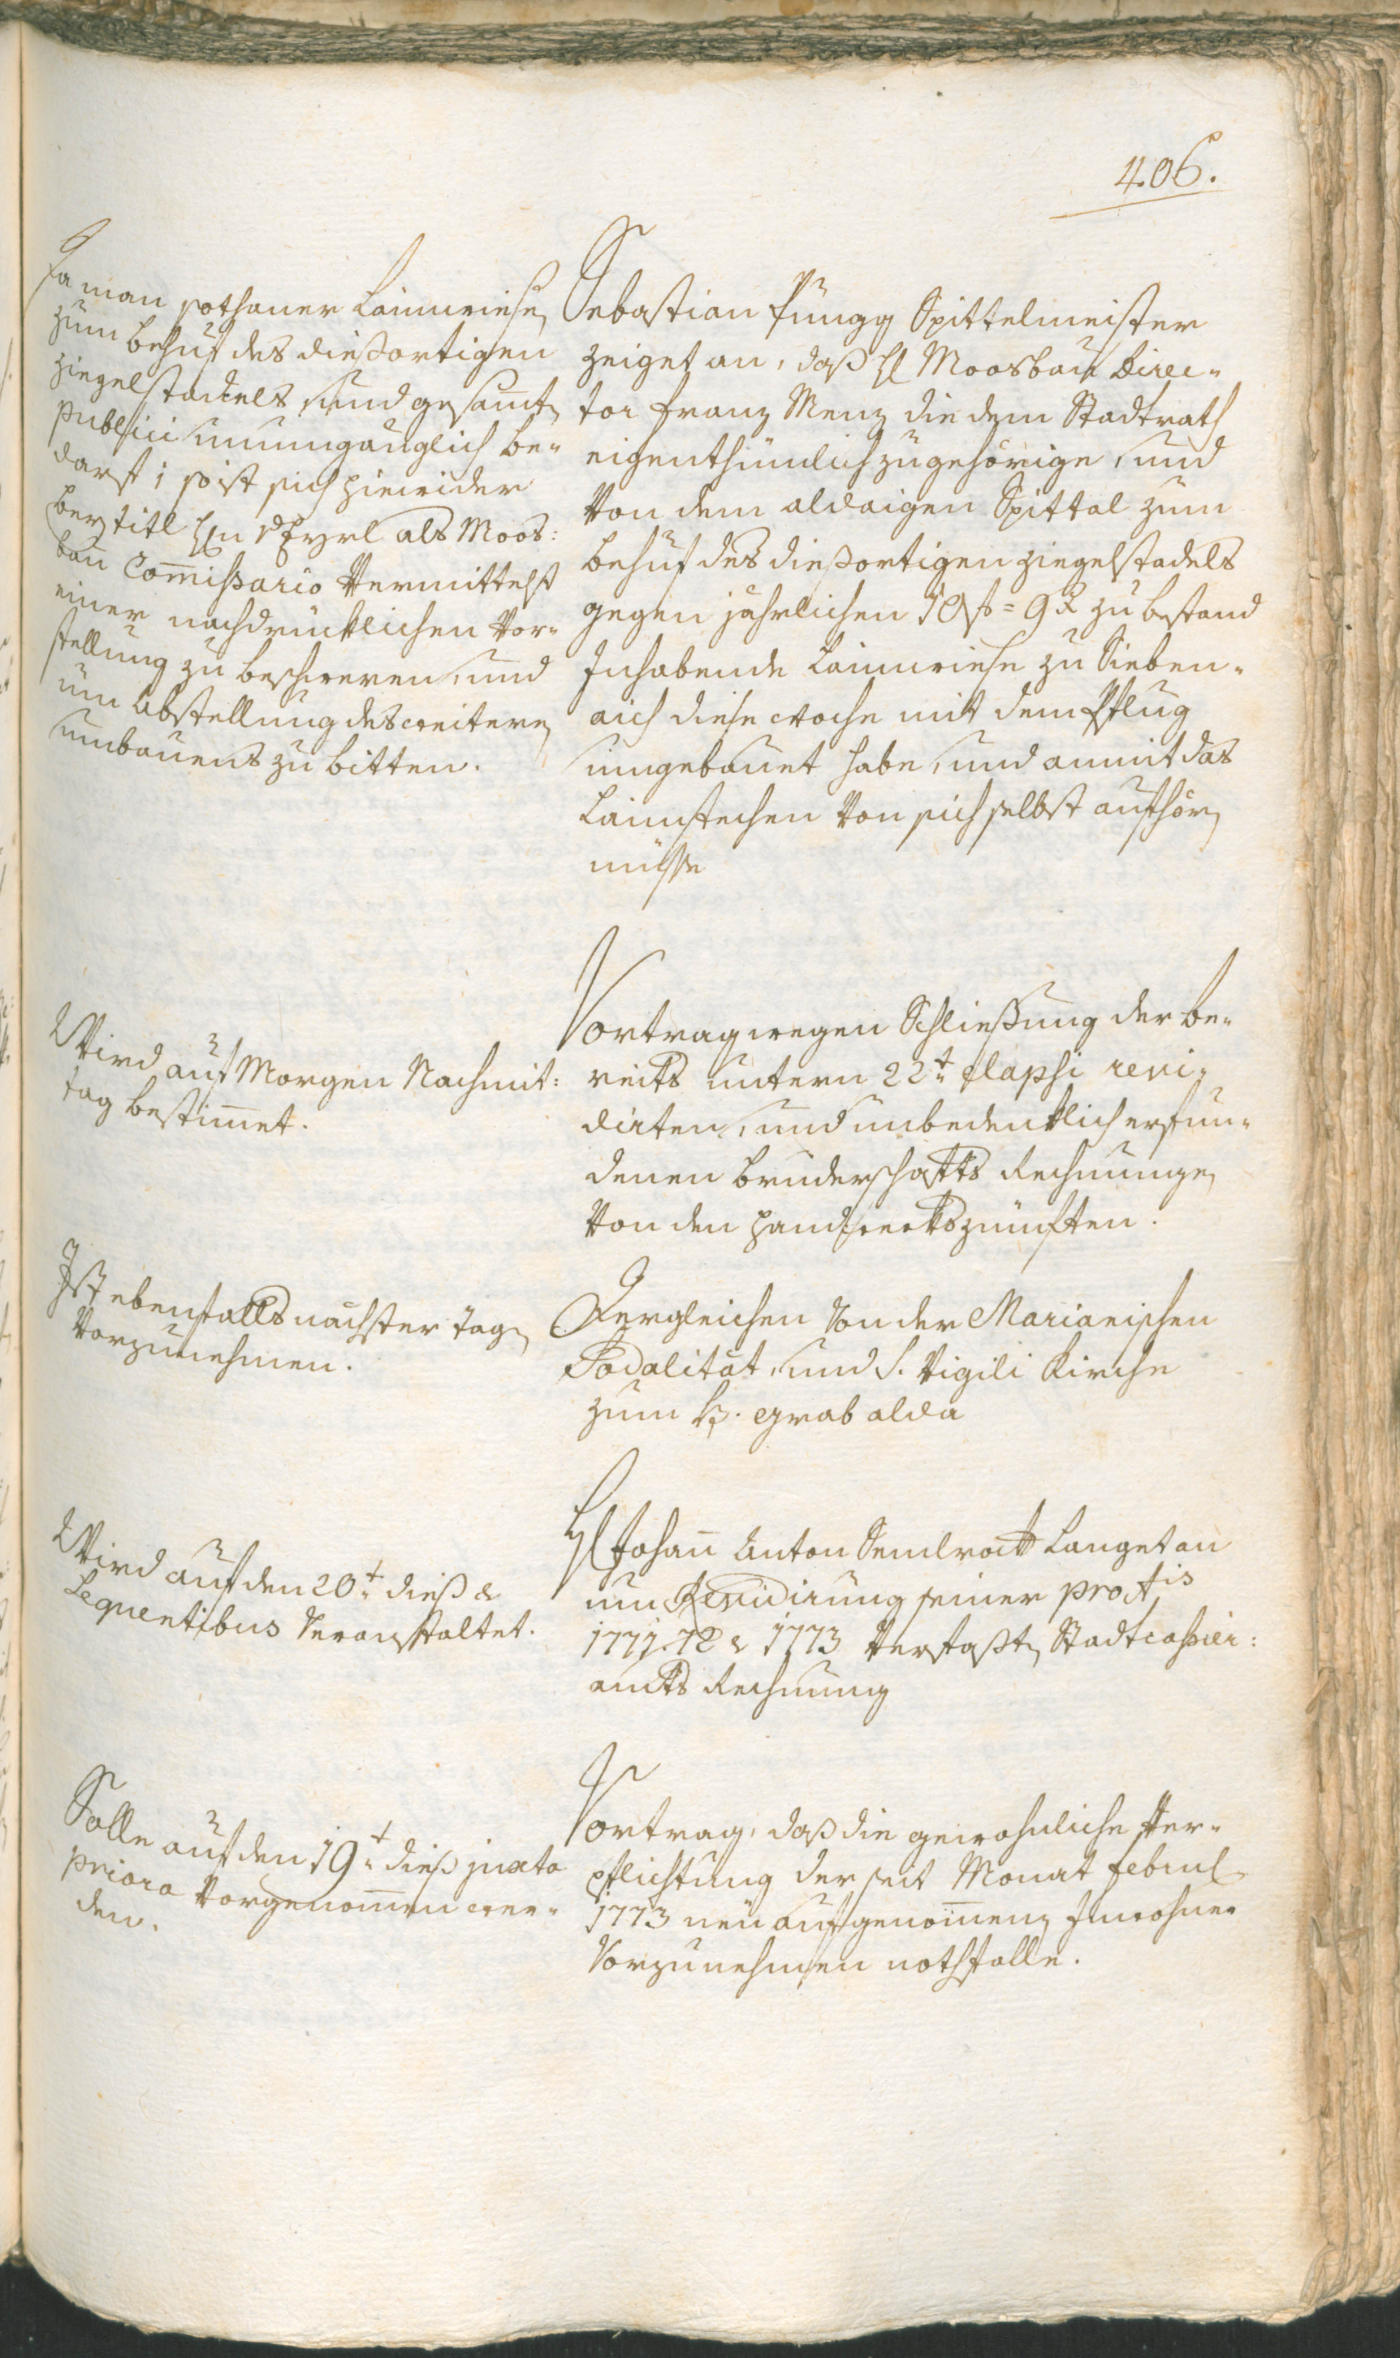 406.
Da man sothaner Laimriesen
zum behuf des dießortigen
ziegelstadels, und gesamten
publici unumgänglich be-
darf; so ist sich hierwider
bey titl Hrn v Eyrl als Moos:
bau Commißario Vermittelst
einer nachdrücklichen Vor-
stellung zu beschweren, und
um Abstellung des weiteren
umbauens zu bitten.
Sebastian Füngg Spittelmeister
zeiget an, daß Hl Moosbau Direc-
tor Franz Menz die dem Stadtrath
eigenthümlich zugehörige, und
Von dem aldaigen Spittal zum
behuf des dießortigen ziegelstadels
gegen jährlichen zu bestand
Inhabende Laimriese zu Sieben-
aich diese Woche mit dem Pflug
umgebauet habe, und anmit das
Laimstechen Von sich selbst aufhören
müsse
Wird auf Morgen Nachmit:
tag bestimmet.
Vortrag wegen Schließung der be-
reits untern 22t elapsi revi-
dirten, und unbedenklich erfun-
denen bruderschafts Rechnungen
Von den handwerkszünften.
Ist ebenfalls nächster Tagen
Vorzunehmen.
Dergleichen Von der Marianischen
Sodalität, und S. Vigili Kirche
zum H. grab alda
Wird auf den 20t dieß &
sequentibus Veranstaltet.
Hl Johann Anton Sendroth Langet an
um Revidirung seiner pro Ais
1771. 72 & 1773 Verfaßten Stadtcaßier:
amts Rechnung
Solle auf den 19t dieß juxta
priora Vorgenommen wer-
den.
Vortrag, daß die gewohnliche Ver-
pflichtung der seit Monat Februl
1773 neu aufgenommenen Inwohner
Vorzunehmen nothfalle.